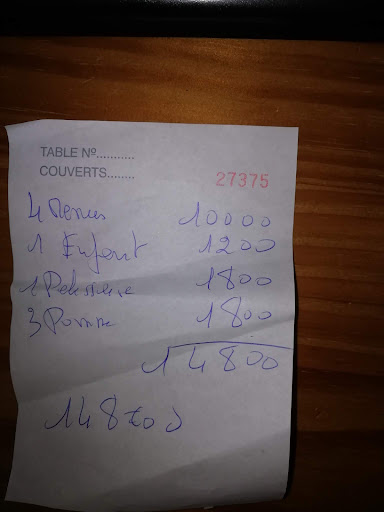 TABLE Nº...........
COUVERTS........
27375
4 Menus 10000
1 Enfant 1200
1 1800
3 Pomme 1800
14800
148€00